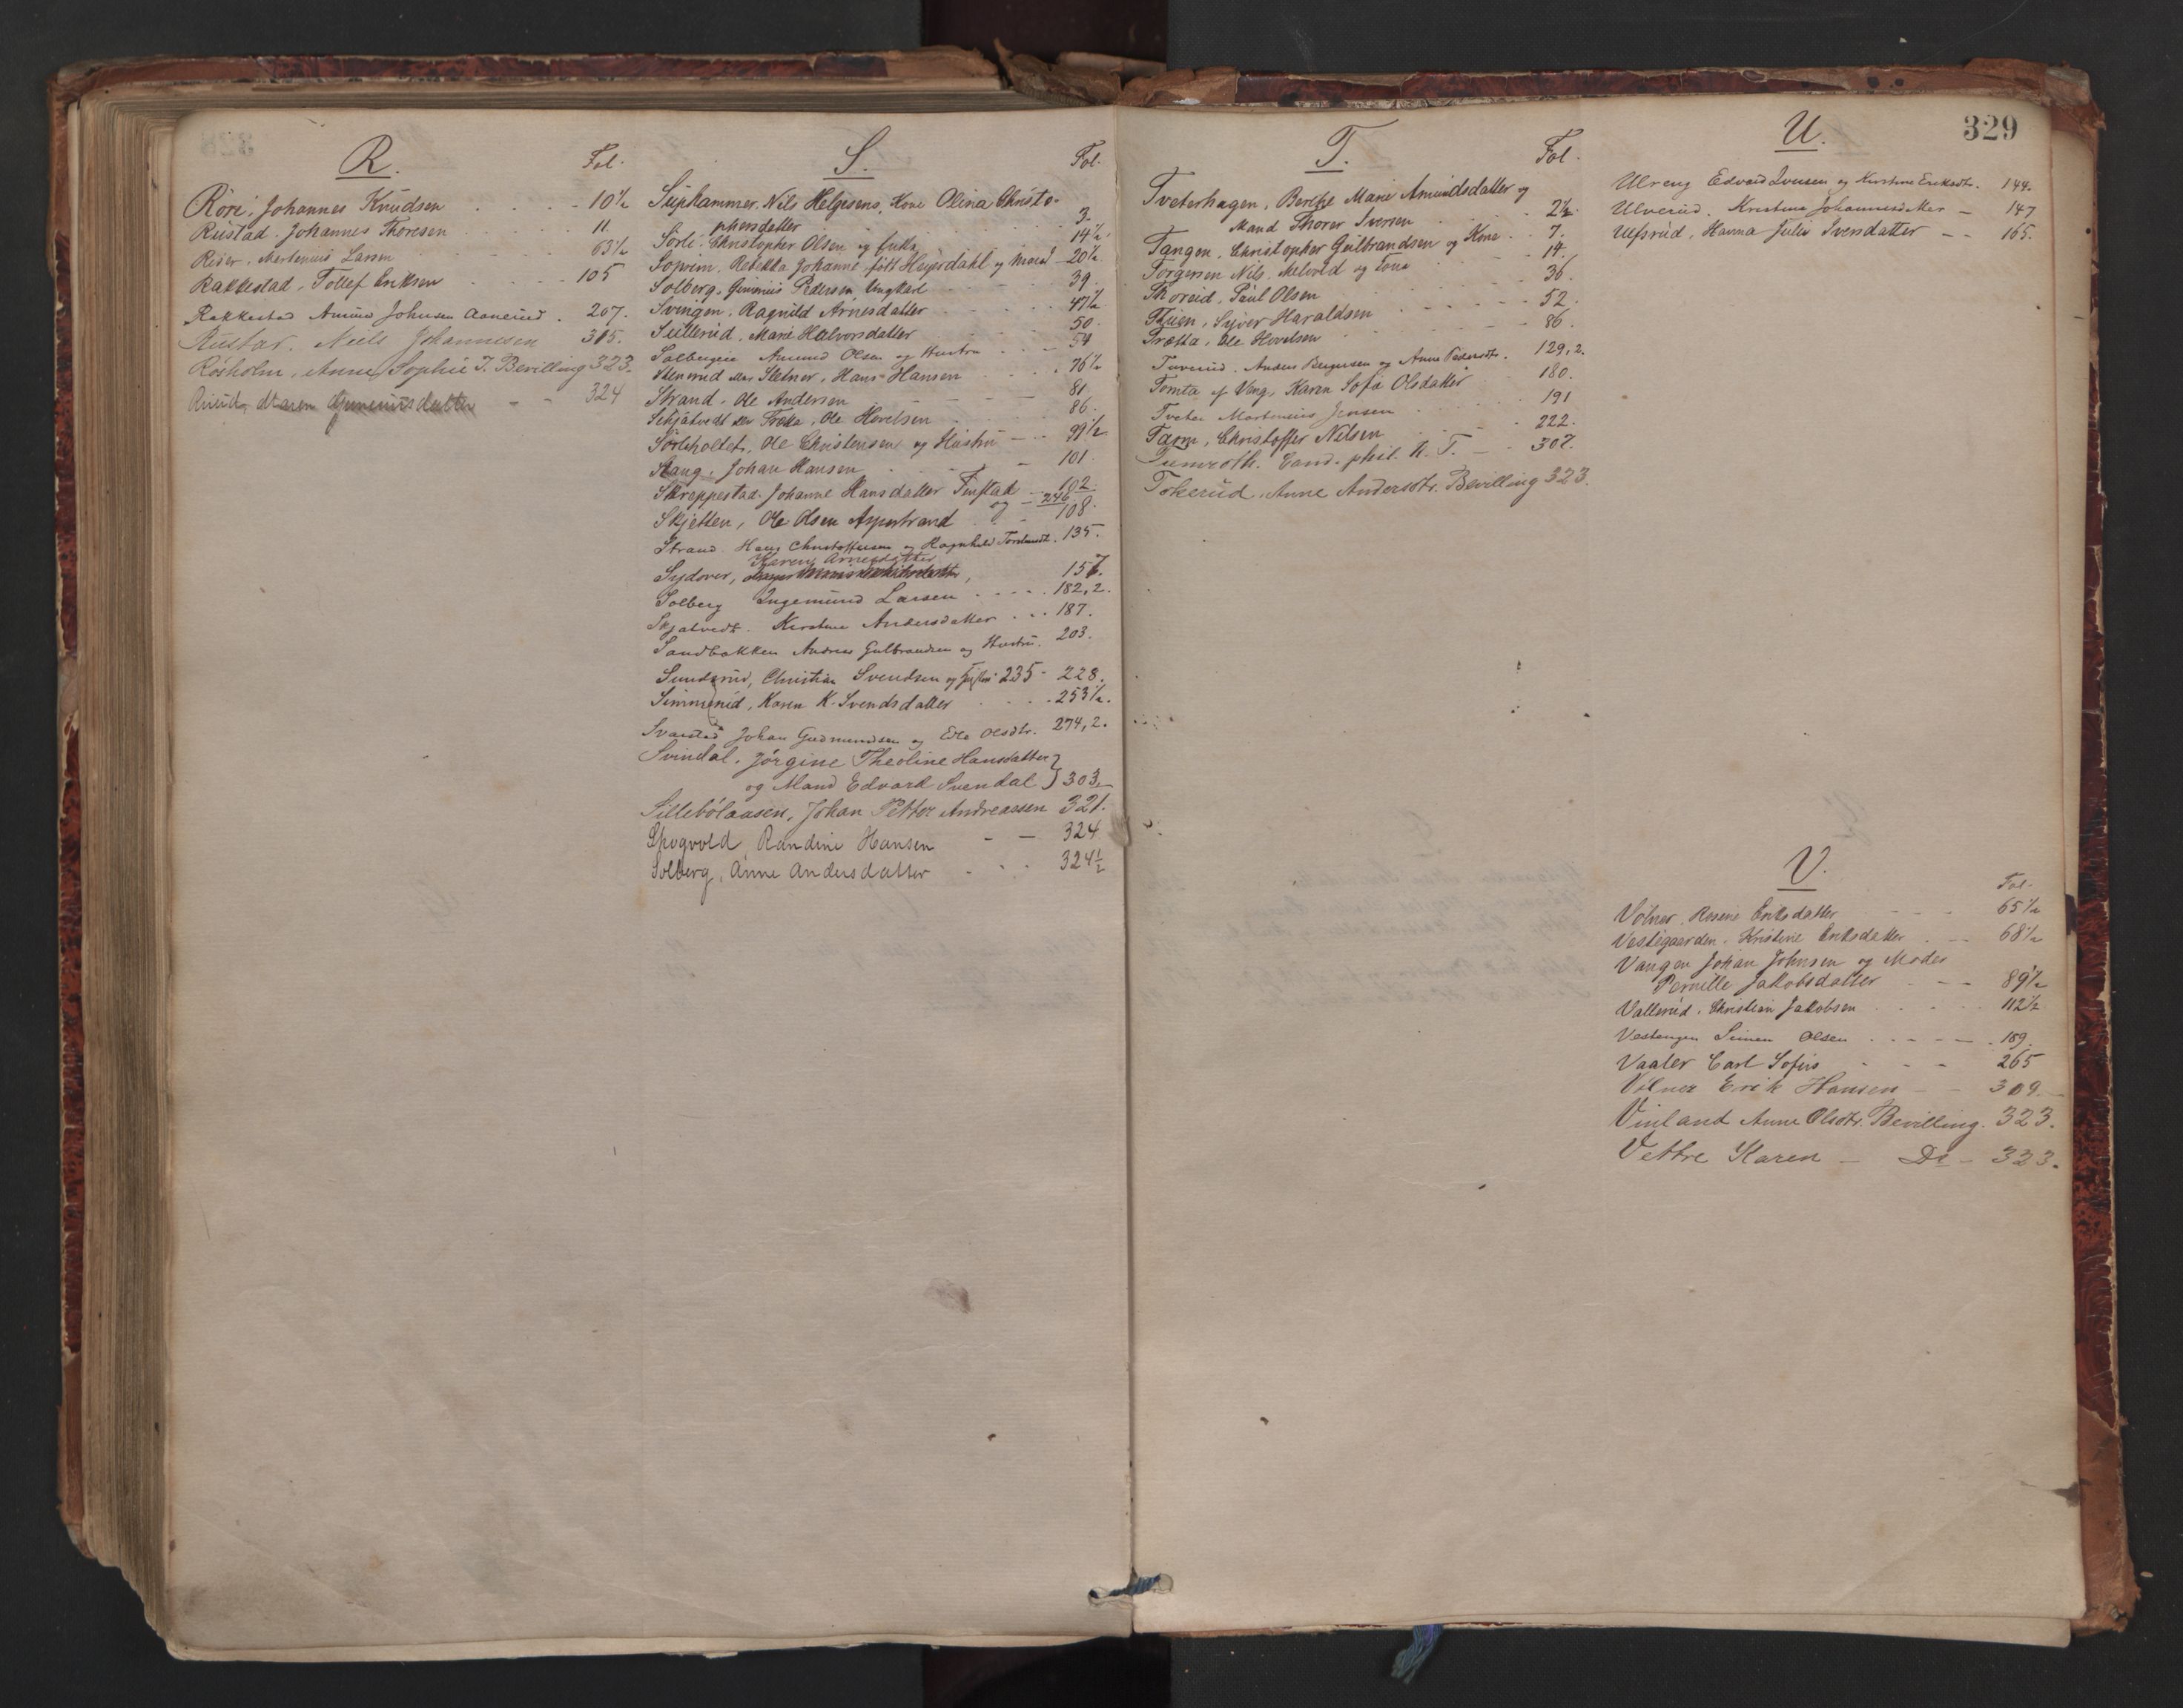 R.
Fol.
Röri, Johannes Knudsen 10½
Rustad. Johannes Thoresen 11.
Reier, Martenius Larsen 63½
Rakkestad, Tollef Eriksen 105
Rakkestad Amund Johnsen Aanerud. 207.
Rustar. Niels Johannesen 315.
Rösholm, Anne Sophie J. Bevilling 323.
Maren Gjemniusdatter 324
S.
Fol.
Suphammer, Nils Helgesens, Kone Olina Christo-
phersdatter 3.
Sörli, Christopher Olsen og 14½
Soprim, Rebekka Johanne født Heyerdahl og Mand 20½
Solberg, Pedersen Ungkarl 39.
Svingen, Ragnild Arnesdatter 47½
Sullerud, Marie Halvorsdatter 50.
Solbergeie Amund Olsen og Hustru 54
Stenerud eller Sletner, Hans Hansen 76½
Strand, Ole Andersen 81.
Skjatvedt eller Træta, Ole Hovelsen 86.
Sörliholdet, Ole Christensen og Hustru 99½
Stang, Johan Hansen 101.
Skreppestad, Johanne Hansdatter Finstad 102
og 246
Skjetten, Ole Olsen Aspestrand 108.
Strand Hans Christoffersen og Ragnhild 135.
Karen Arnesdatter
Sydover, 157.
Solberg Ingemund Larsen 182,2.
Skjatvedt. Kirstine Andersdatter 187.
Sandbakken Andreas Gulbrandsen og Hustru. 203.
Sundsrud, Christian Svendsen og 235 - 228.
Simmerud, Karen K. Svendsdatter 253½.
Svarstad Johan Gudmundsen og Edle Olsdtr. 274,2.
Svindal, Jörgine Theoline Hansdatter
og Mand Edvard Svendal } 303
Sillebölaasen, Johan Petter Andreassen 321.
Skogvold, Randine Hansen 324
Solberg, Anne Andersdatter 324½
329
T.
Fol.
Tveterhagen, Berthe Marie Amundsdatter og
Mand Thorer Iversen 2½.
Tangen, Christopher Gulbrandsen og Kone 7.
Torgersen Nils, Melvold og Kone 14.
Thoreid, Paul Olsen 36.
Thien, Syver Haraldsen 52.
Trætta, Ole Hovelsen 86.
Tuverud. Anders Børgersen og Anne Pedersdtr. 129,2.
Tomta af Vang, Karen Sofie Olsdatter 180.
Tveten Martenius Jensen 191
Tarm, Christoffer Nilsen 222.
Tumroth. Cand. phil. N. T. 307.
Tokerud, Anne Andersdtr. Bevilling 323.
U.
Ulreng Edvard Iversen og Kirstine Eriksdtr. 144.
Ulverud. Kristine Johannesdatter 147
Ulfsrud, Hanna Julie Iversdatter 165.
V.
Fol.
Völner, Rosine Eriksdatter 65½
Vestigaarden, Kristine Eriksdatter 68½
Vangen Johan Johnsen og Moder
Pernille Jakobsdatter 89½
Vallerud, Christian Jakobsen 112½
Vestengen Simen Olsen 189.
Vaaler Carl Sofus 265
Völner Erik Hansen 309.
Vinland Anne Olsdtr. Bevilling. 323.
Vettre Karen - Do - 323.